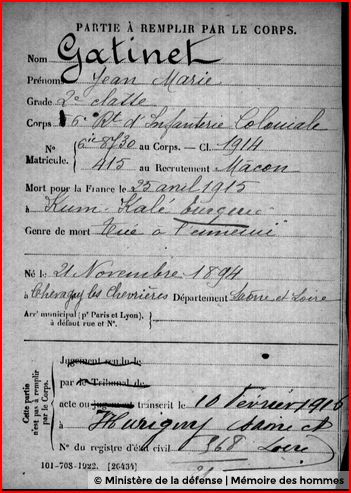 PARTIE À REMPLIR PAR LE CORPS.
Nom Gatinet
Prénoms Jean Marie
Grade 2e classe
Corps 6e Rt d'Infanterie Coloniale
N° 6ie 8730 au Corps. — Cl. 1914
Matricule. 415 au Recrutement Macon
Mort pour la France le 25 avril 1915
à Kum-Kalé
Genre de mort Tué à l'ennemi
Né le 21 Novembre 1894
à Chevagny les Chevrières Département Saône et Loire
Arrt municipal (pr Paris et Lyon),
à défaut rue et N°.
Cette partie n'est pas à remplir par le Corps.
Jugement rendu le
par le Tribunal de
acte ou jugement transcrit le 10 Février 1916
à Hurigny Saône et Loire
N° du registre d'état civil 968
101-708-1922. [26434]
© Ministère de la défense | Mémoire des hommes